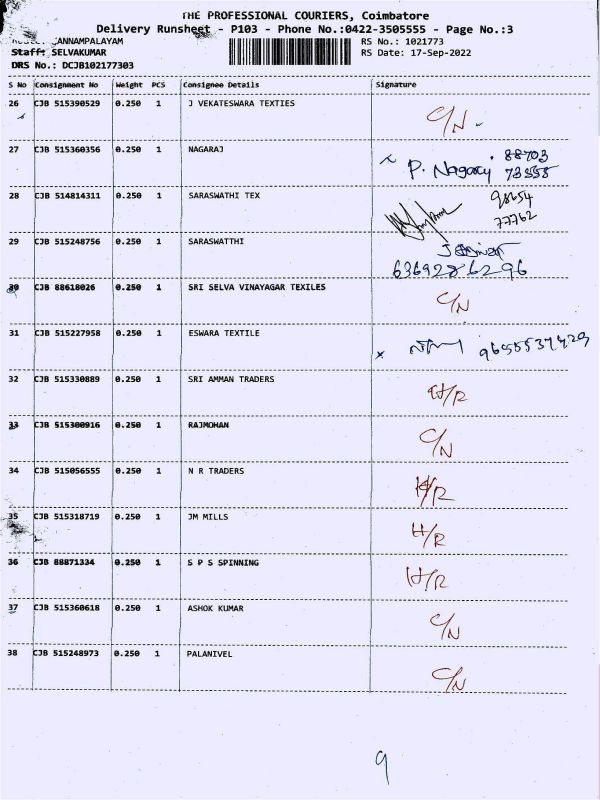 THE PROFESSIONAL COURIERS, Coimbatore
Delivery Runsheet - P103 - Phone No.:0422-3505555 - Page No.:3
ANNAMPALAYAM RS No.: 1021773
Staff: SELVAKUMAR RS Date: 17-Sep-2022
DRS No.: DCJB102177303
S No Consignment No Weight PCS Consignee Details Signature
26 CJB 515390529 0.250 1 J VEKATESWARA TEXTIES C/N
27 CJB 515360356 0.250 1 NAGARAJ P. Nagaraj 88703
73555
28 CJB 514814311 0.250 1 SARASWATHI TEX 98654
77762
29 CJB 515248756 0.250 1 SARASWATTHI
6369286296
30 CJB 88618026 0.250 1 SRI SELVA VINAYAGAR TEXILES C/N
31 CJB 515227958 0.250 1 ESWARA TEXTILE x 9655537429
32 CJB 515330889 0.250 1 SRI AMMAN TRADERS H/R
33 CJB 515300916 0.250 1 RAJMOHAN C/N
34 CJB 515056555 0.250 1 N R TRADERS H/R
35 CJB 515318719 0.250 1 JM MILLS H/R
36 CJB 88871334 0.250 1 S P S SPINNING H/R
37 CJB 515360618 0.250 1 ASHOK KUMAR C/N
38 CJB 515248973 0.250 1 PALANIVEL C/N
9